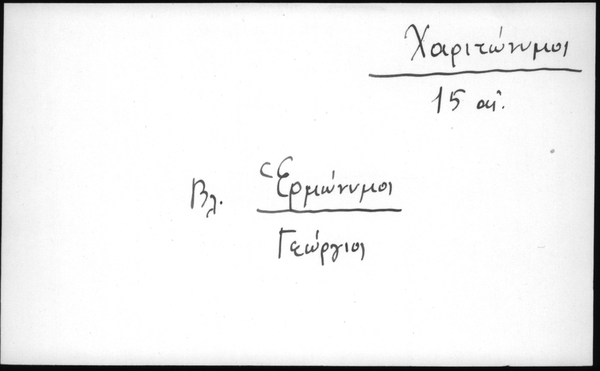 Χαριτώνυμος
15 αἰ.
Βλ. Ἑρμώνυμος
Γεώργιος